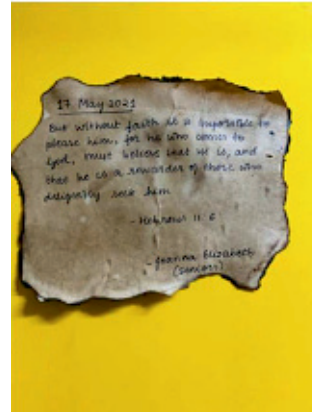 17 May 2021
But without faith it is impossible to
please him, for he who comes to
God, must believe that He is, and
that he is a rewarder of those who
diligently seek him
- Hebrews 11:6
- Jeanna Elizabeth